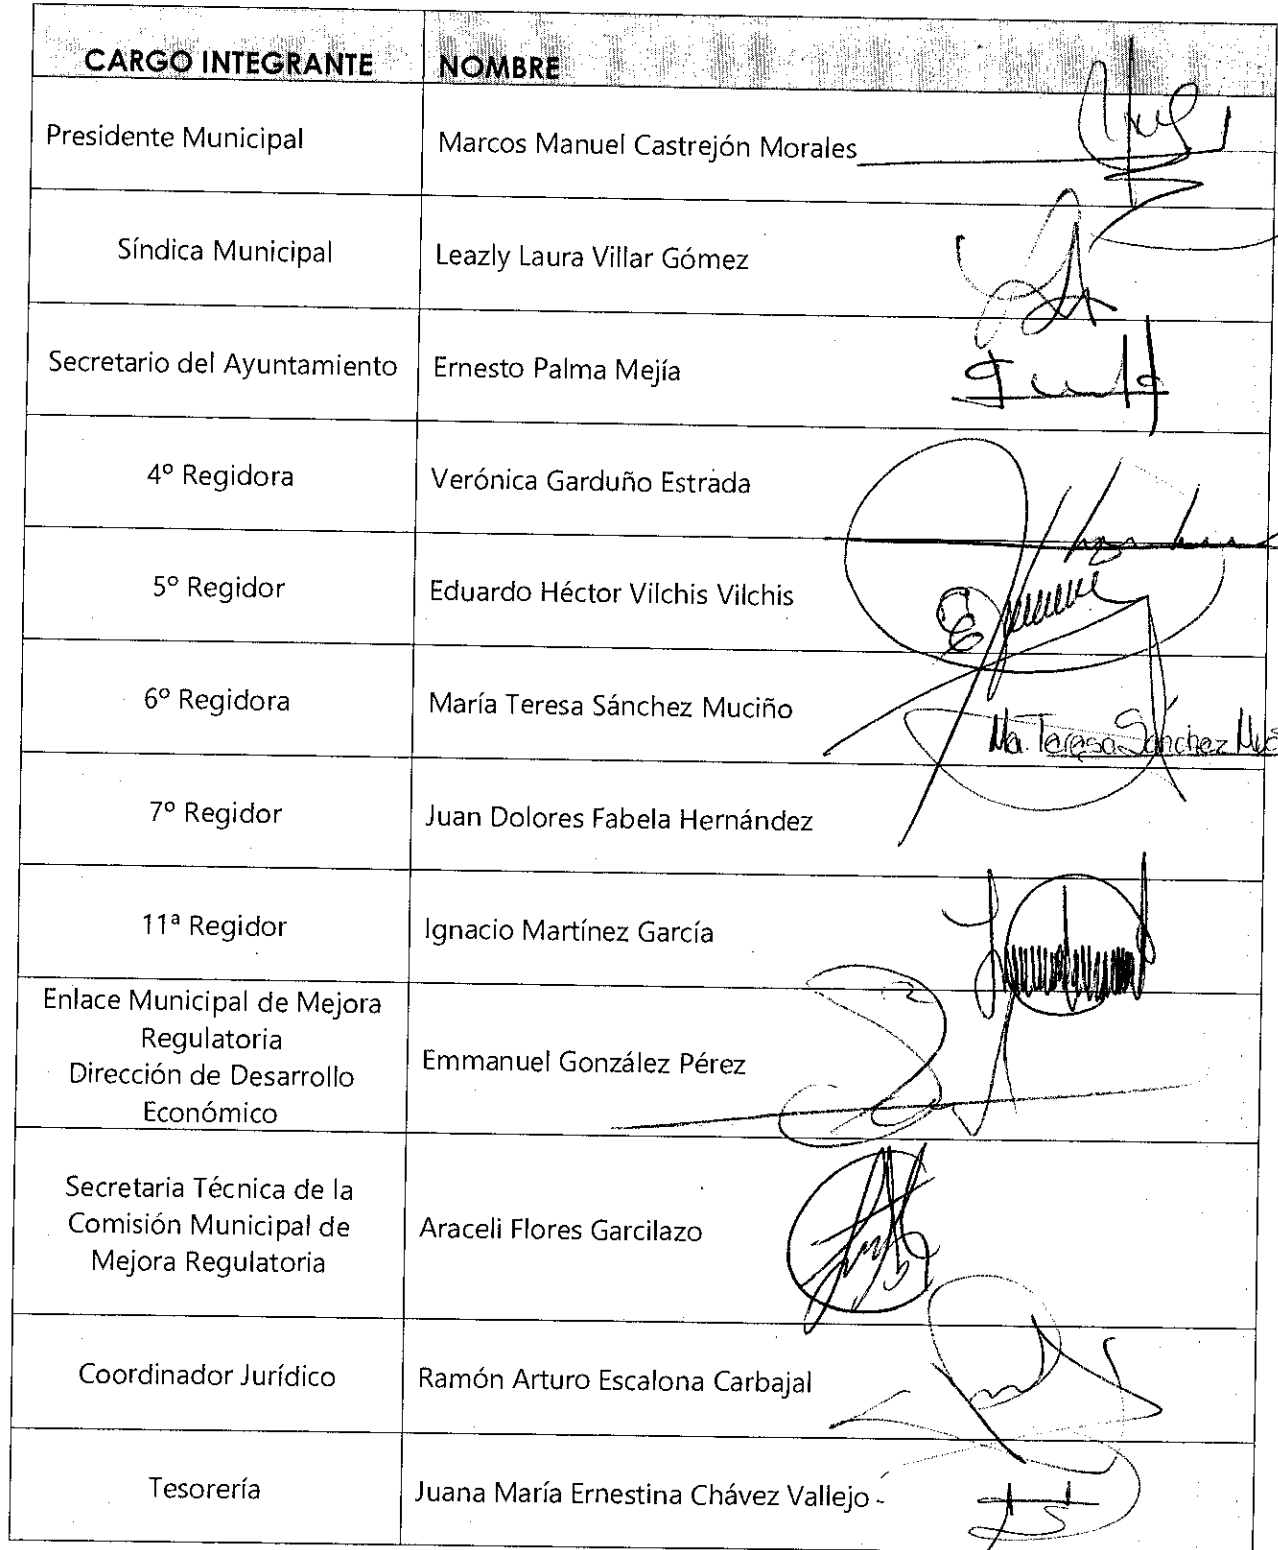 CARGO INTEGRANTE NOMBRE
Presidente Municipal Marcos Manuel Castrejón Morales
Síndica Municipal Leazly Laura Villar Gómez
Secretario del Ayuntamiento Ernesto Palma Mejía
4º Regidora Verónica Garduño Estrada
5º Regidor Eduardo Héctor Vilchis Vilchis
6º Regidora María Teresa Sánchez Muciño
Ma. Teresa Sánchez
7º Regidor Juan Dolores Fabela Hernández
11ª Regidor Ignacio Martínez García
Enlace Municipal de Mejora
Regulatoria
Dirección de Desarrollo
Económico
Emmanuel González Pérez
Secretaria Técnica de la
Comisión Municipal de
Mejora Regulatoria
Araceli Flores Garcilazo
Coordinador Jurídico Ramón Arturo Escalona Carbajal
Tesorería Juana María Ernestina Chávez Vallejo -